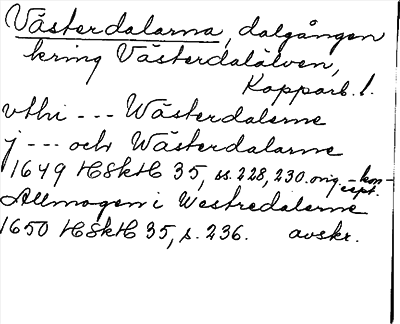 Västerdalarna, dalgången
kring Västerdalälven,
Kopparb. l.
vthi --- Wästerdalerne
j --- och Wästerdalarne
1649 HSkH 35, ss. 228, 230. orig.-kon-
cept.
Allmogen i Westredalerne
1650 HSkH 35, s. 236. avskr.